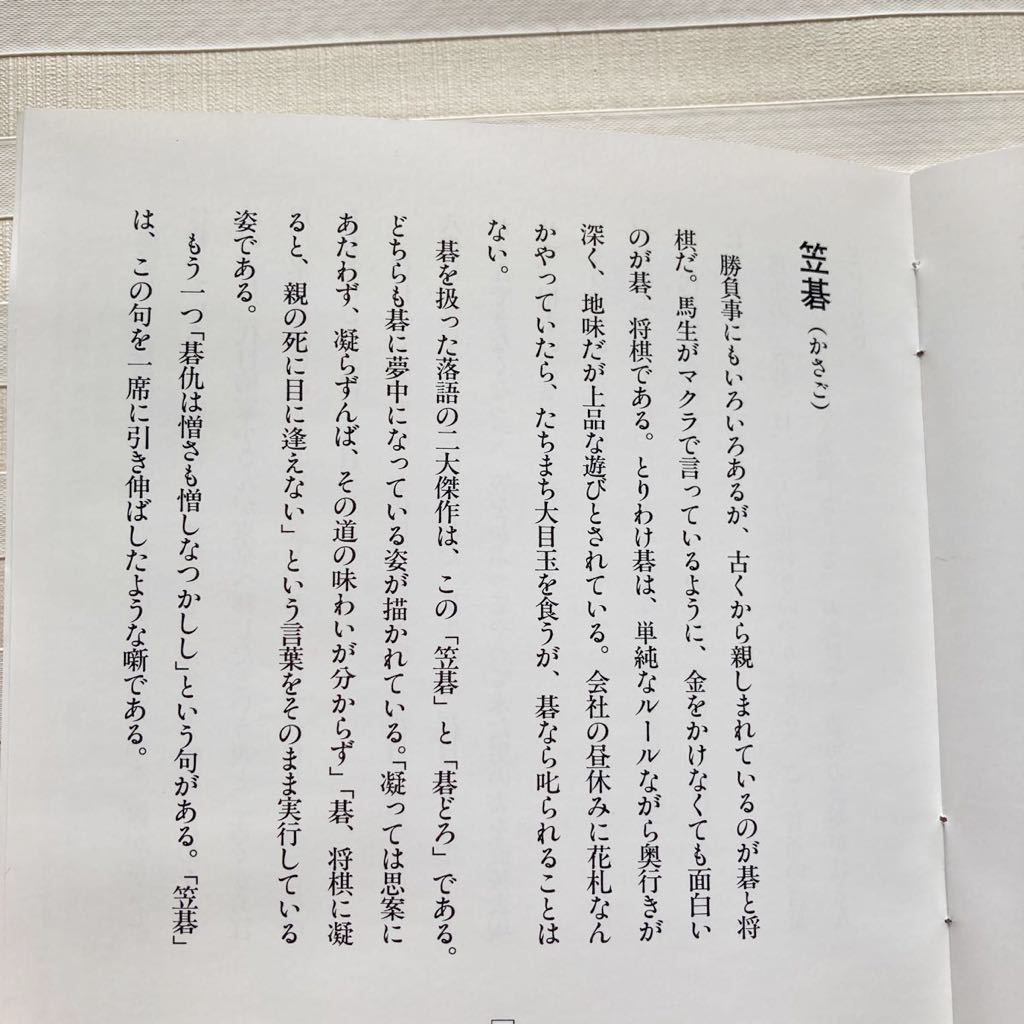 笠碁（かさご）
勝負事にもいろいろあるが、古くから親しまれているのが碁と将
棋だ。馬生がマクラで言っているように、金をかけなくても面白い
のが碁、将棋である。とりわけ碁は、単純なルールながら奥行きが
深く、地味だが上品な遊びとされている。会社の昼休みに花札なん
かやっていたら、たちまち大目玉を食うが、碁なら叱られることは
ない。
碁を扱った落語の二大傑作は、この「笠碁」と「碁どろ」である。
どちらも碁に夢中になっている姿が描かれている。「凝っては思案に
あたわず、凝らずんば、その道の味わいが分からず」「碁、将棋に凝
ると、親の死に目に逢えない」という言葉をそのまま実行している
姿である。
もう一つ「碁仇は憎さも憎しなつかしし」という句がある。「笠碁」
は、この句を一席に引き伸ばしたような噺である。